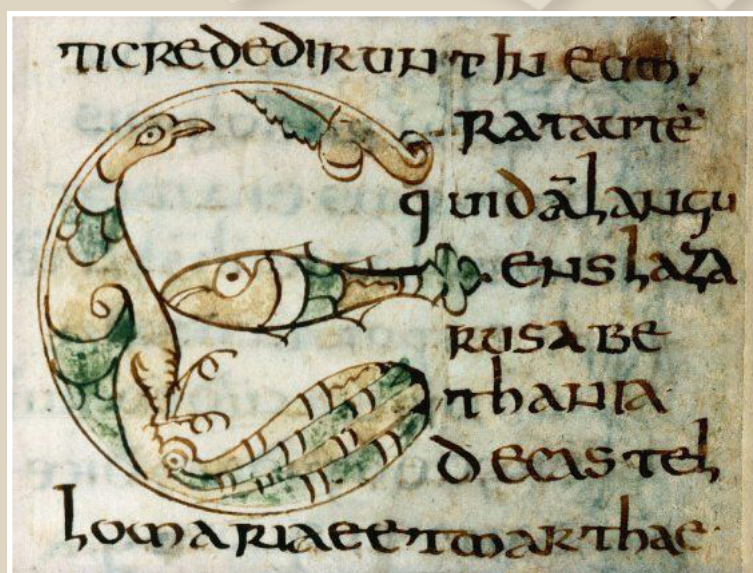 ticrededirunt in eum,
ERATAUTĒ
quidālangu
enslaza
rusabe
thania
decastel
lomariaeetmarthae·